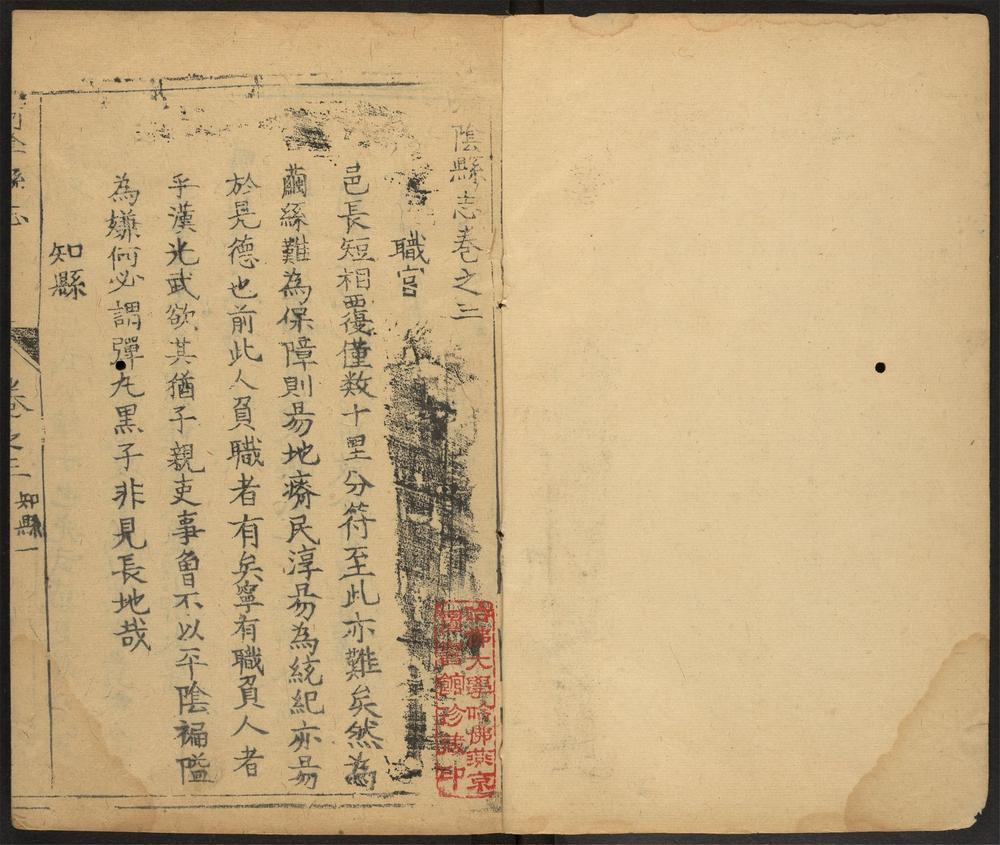 陰縣志卷之三
職官
邑長短相覆僅数十里分符至此亦難矣然為
繭絲難為保障則昜地瘠民淳昜為統紀亦昜
於見德也前此人負職者有矣寧有職負人者
乎漢光武欲其猶子親吏事曾不以平陰褊隘
為嫌何必謂彈丸黒子非見長地哉
知縣
縣志
卷之三
知縣一
哈佛大學哈佛燕京
圖書館珍藏印